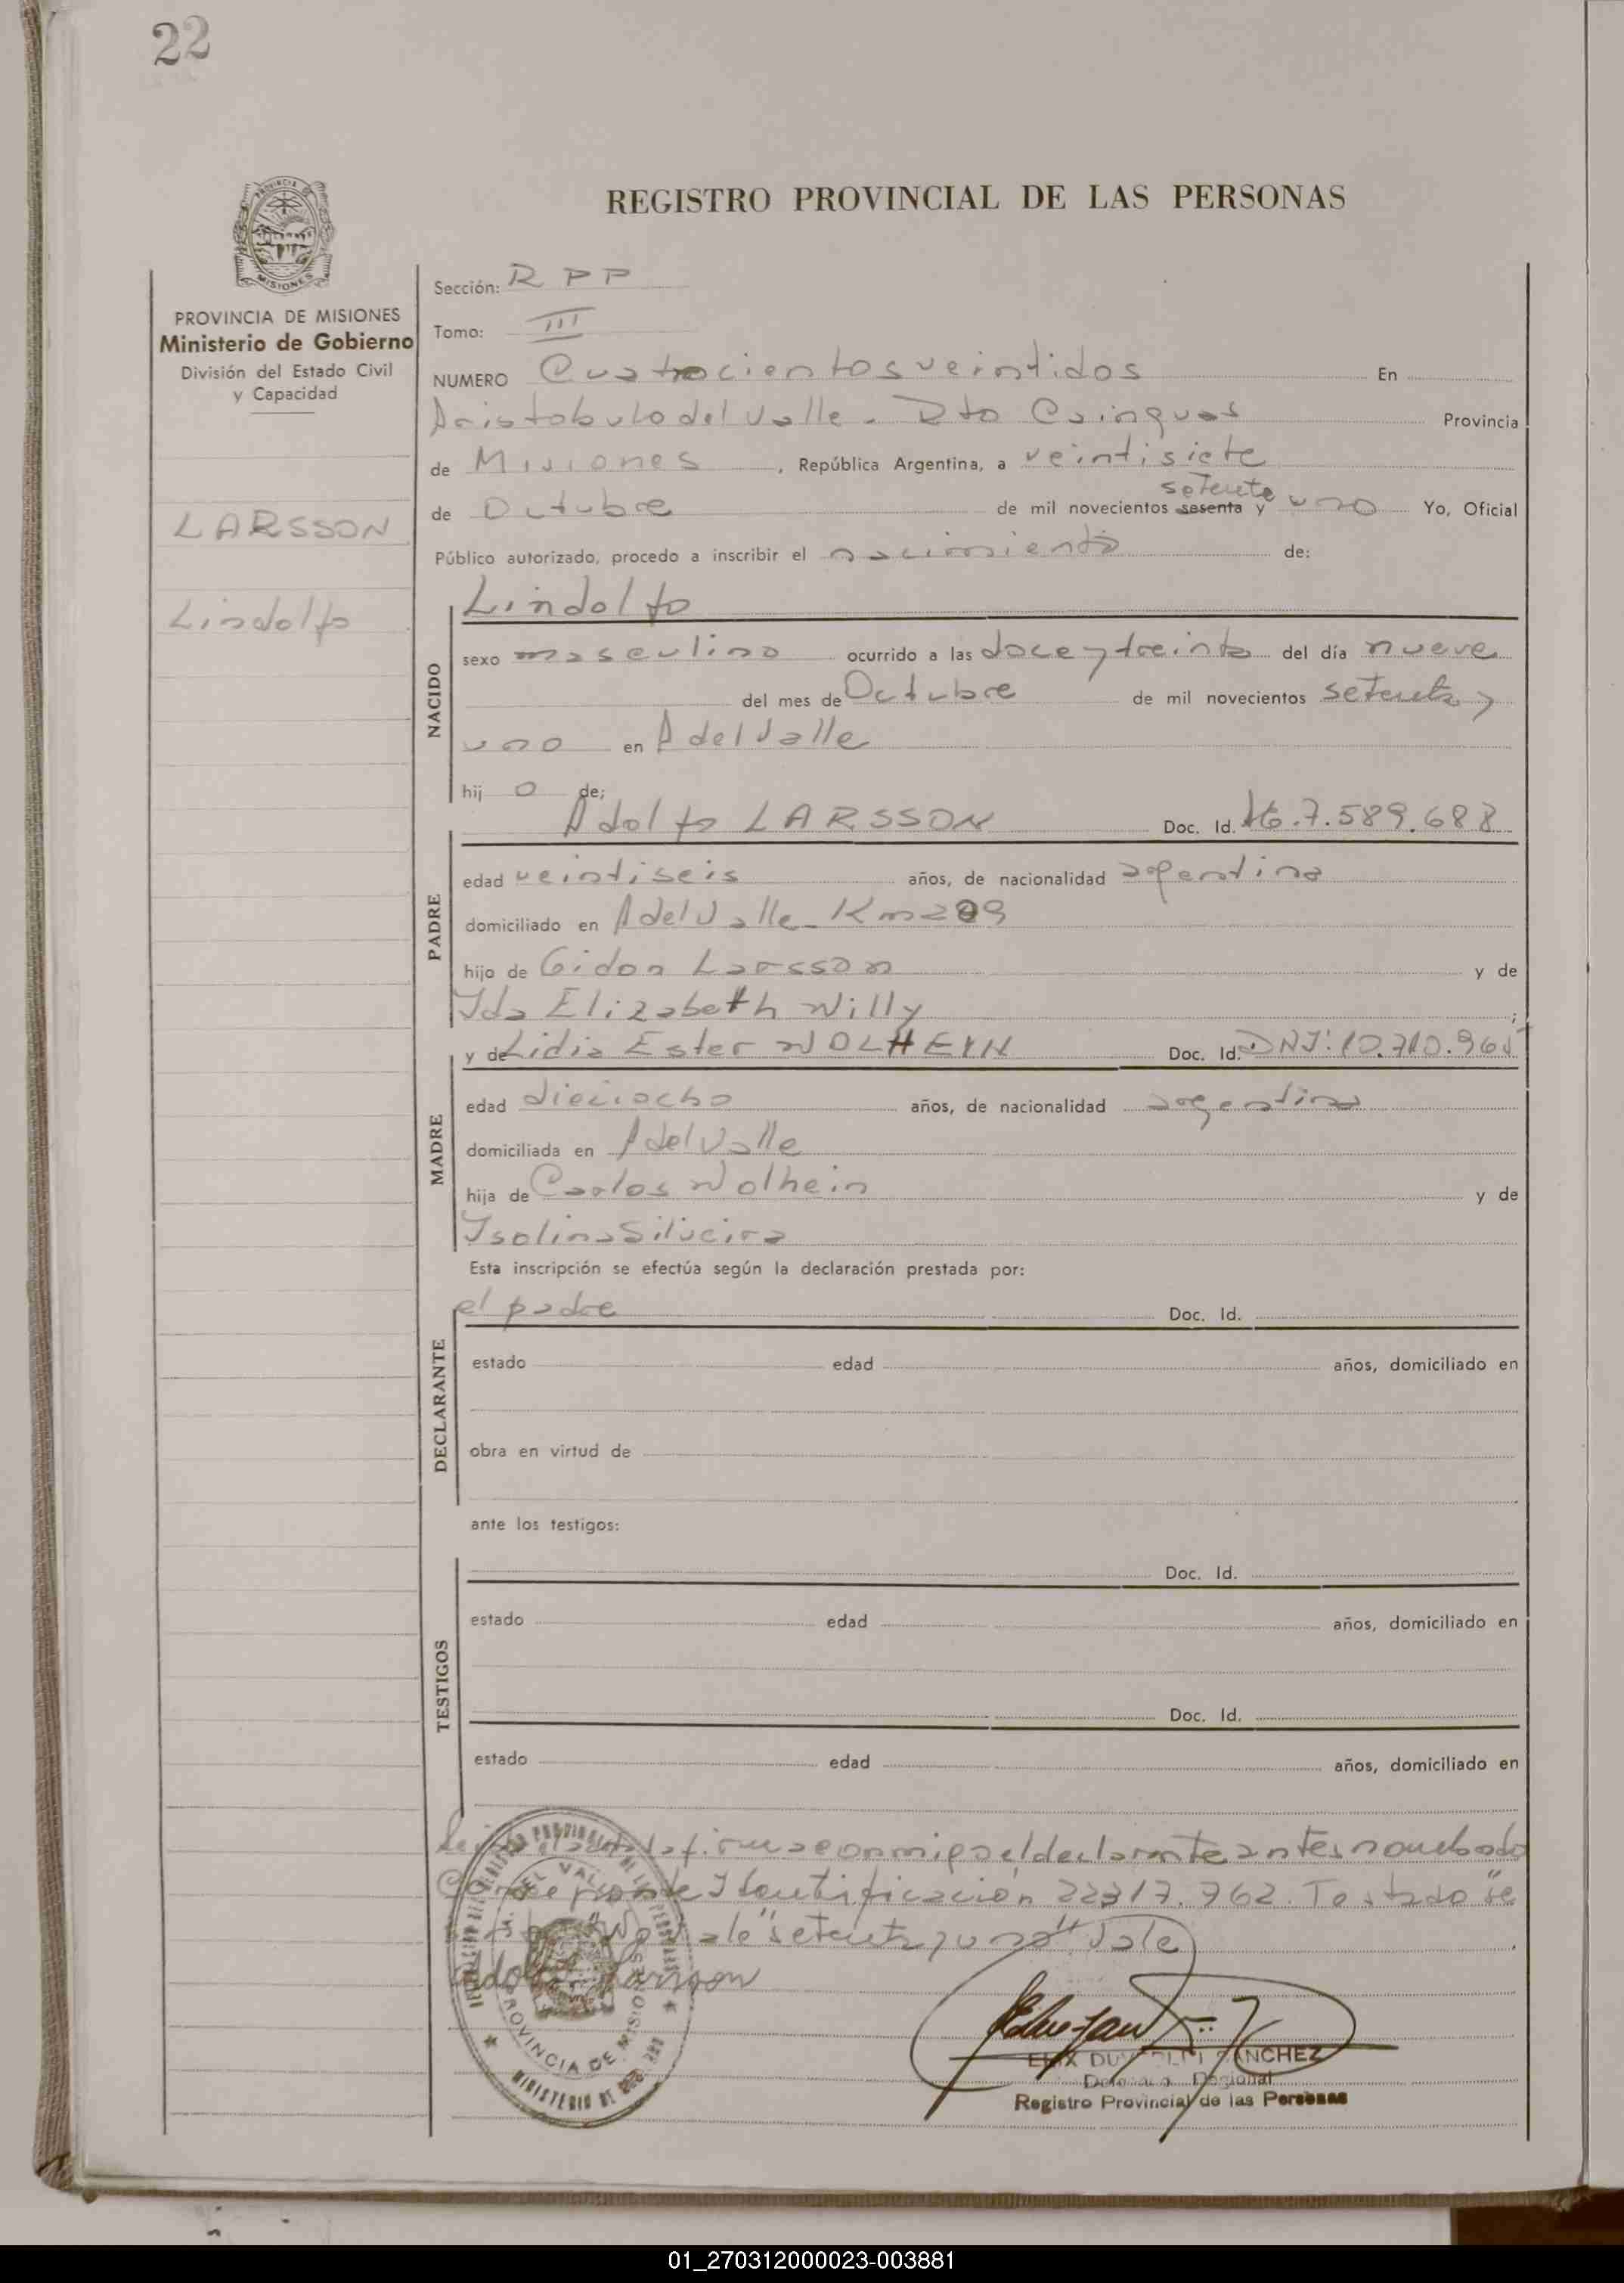 22
REGISTRO PROVINCIAL DE LAS PERSONAS
PROVINCIA DE MISIONES
Ministerio de Gobierno
División del Estado Civil
y Capacidad
LARSSON
Lindolfo
Sección: R P P
Tomo: III
NUMERO Cuatrocientos veintidos En
Aristobulo del Valle - Dto Cainguas Provincia
de Misiones, República Argentina, a veintisiete
setenta
de Octubre de mil novecientos sesenta y uno Yo, Oficial
Público autorizado, procedo a inscribir el nacimiento de:
NACIDO
Lindolfo
sexo masculino ocurrido a las doce y treinta del día nueve
del mes de Octubre de mil novecientos setenta y
uno en A del Valle
hij o de;
PADRE
Adolfo LARSSON Doc. Id. 7.589.688
edad veintiseis años, de nacionalidad argentina
domiciliado en A del Valle - Km
hijo de Gidon Larsson y de
Ida Elizabeth Willy ;
MADRE
y de Lidia Ester WOLHEIN Doc. Id. DNI: 10.710.965
edad dieciocho años, de nacionalidad argentina
domiciliada en A del Valle
hija de Carlos Wolhein y de
Isolina Silveira
Esta inscripción se efectúa según la declaración prestada por:
DECLARANTE
el padre Doc. Id.
estado edad años, domiciliado en
obra en virtud de
ante los testigos:
TESTIGOS
Doc. Id.
estado edad años, domiciliado en
Doc. Id.
estado edad años, domiciliado en
el acta la firma conmigo el declarante antes nombrado
Identificación 22317.762. Testado "se
vale "setenta y uno" Vale
Adolfo Larsson
SANCHEZ
Delegado Regional
Registro Provincial de las Personas
PROVINCIA DE MISIONES
MINISTERIO DE
01_270312000023-003881